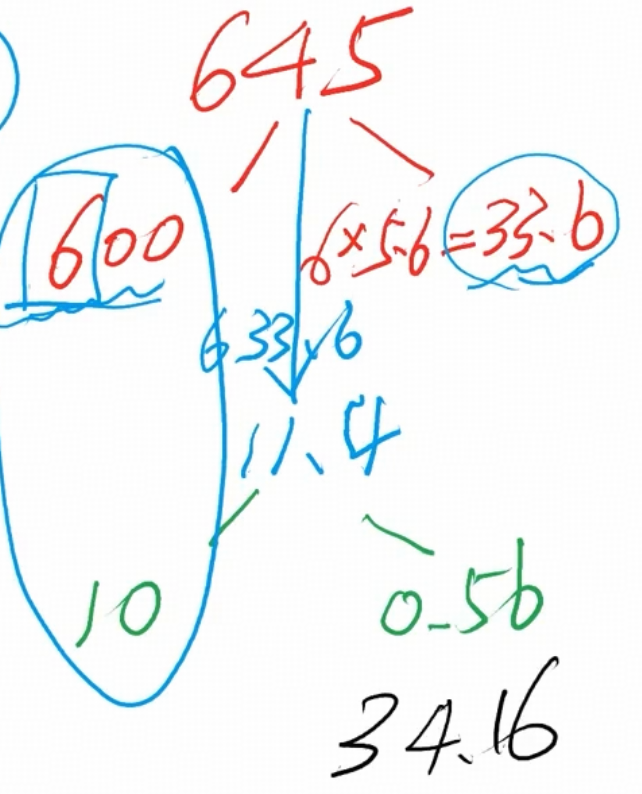 645
600 6×5.6=33.6
633.6
11.4
10 0.56
34.16